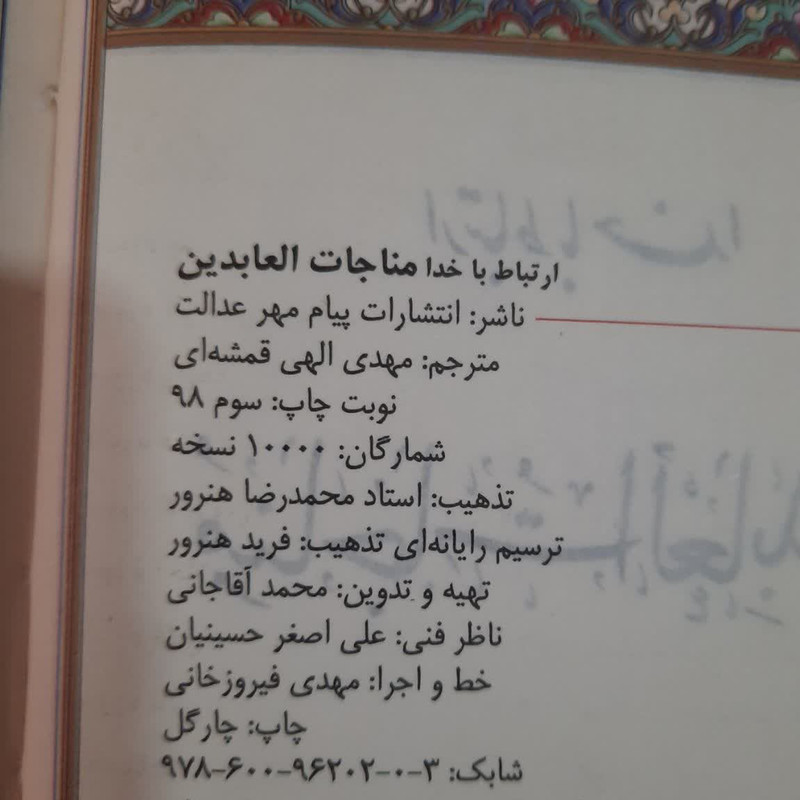 ارتباط با خدا مناجات العابدین
ناشر: انتشارات پیام مهر عدالت
مترجم: مهدی الهی قمشه‌ای
نوبت چاپ: سوم ۹۸
شمارگان: ۱۰۰۰۰ نسخه
تذهیب: استاد محمدرضا هنرور
ترسیم رایانه‌ای تذهیب: فرید هنرور
تهیه و تدوین: محمد آقاجانی
ناظر فنی: علی اصغر حسینیان
خط و اجرا: مهدی فیروزخانی
چاپ: چارگل
شابک: ۳-۰-۹۶۲۰۲-۶۰۰-۹۷۸